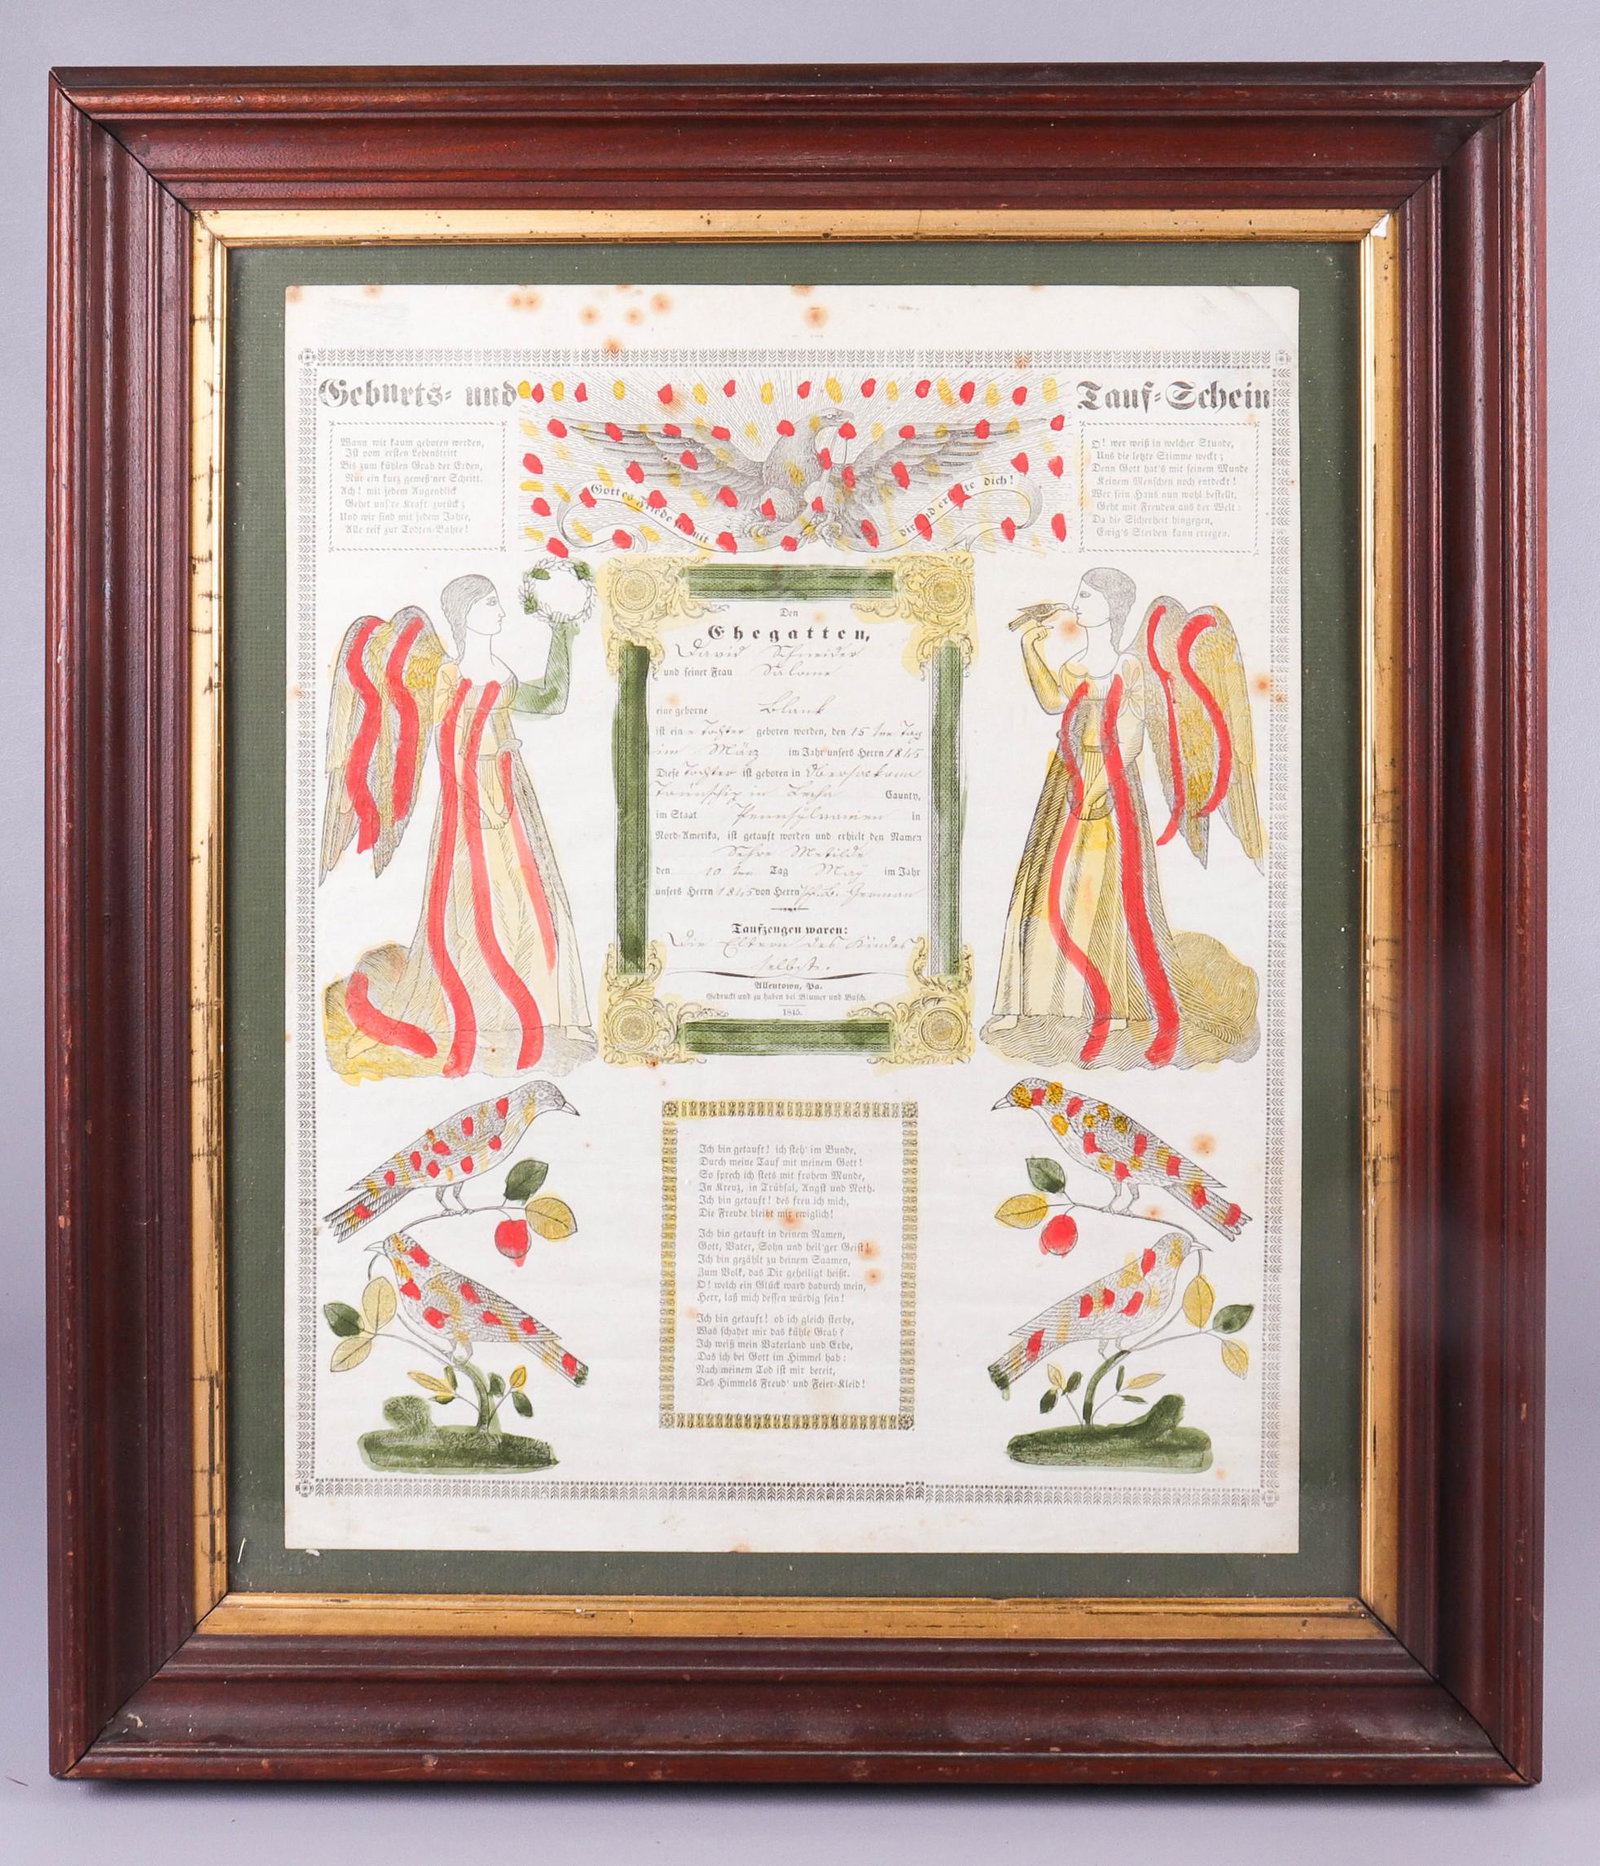 Geburts- und Tauf-Schein
Wann wir kaum geboren werden,
Ist vom ersten Lebenstritt
Bis zum kühlen Grab der Erden,
Nur ein kurz gemeß'ner Schritt.
Ach! mit jedem Augenblick
Gehet uns're Kraft zurück;
Und wir sind mit jedem Jahre,
Alle reif zur Todten-Bahre!
Gottes Friede sei mit dir und erhalte dich!
O! wer weiß in welcher Stunde,
Uns die letzte Stimme weckt;
Denn Gott hat's mit seinem Munde
Keinem Menschen noch entdeckt!
Wer sein Haus nun wohl bestellt,
Geht mit Freuden aus der Welt:
Da die Sicherheit hingegen,
Ewig's Sterben kann erregen.
Den
Ehegatten,
David Schneider
und seiner Frau Salome
eine geborne Blank
ist eine Tochter geboren worden, den 15ten Tag
im März im Jahr unsers Herrn 1845
Diese Tochter ist geboren in Obersackona
Taunschip in Lecha Caunty,
im Staat Pennsylvanien in
Nord-Amerika, ist getauft worden und erhielt den Namen
Matilde
den 10ten Tag May im Jahr
unsers Herrn 1845 von Herrn German
Taufzeugen waren:
Die Eltern des Kindes
selbst.
Allentown, Pa.
Gedruckt und zu haben bei Blumer und Busch.
1845.
Ich bin getauft! ich steh' im Bunde,
Durch meine Tauf mit meinem Gott!
So sprech ich stets mit frohem Munde,
In Kreuz, in Trübsal, Angst und Noth.
Ich bin getauft! des freu ich mich,
Die Freude bleibt mir ewiglich!
Ich bin getauft in deinem Namen,
Gott, Vater, Sohn und heil'ger Geist!
Ich bin gezählt zu deinem Saamen,
Zum Volk, das Dir geheiligt heißt.
O! welch ein Glück ward dadurch mein,
Herr, laß mich dessen würdig sein!
Ich bin getauft! ob ich gleich sterbe,
Was schadet mir das kühle Grab?
Ich weiß mein Vaterland und Erbe,
Das ich bei Gott im Himmel hab:
Nach meinem Tod ist mir bereit,
Des Himmels Freud' und Feier-Kleid!